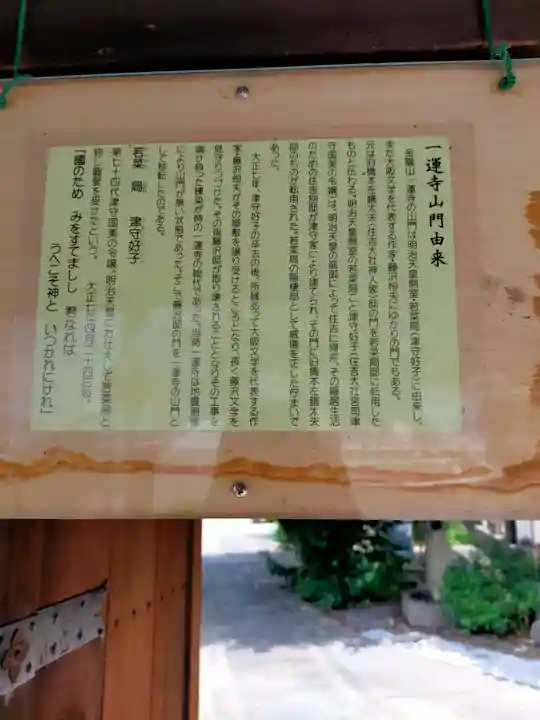 一運寺山門由来
金龍山一運寺の山門は明治天皇側室・若菜局(津守好子)に由来し、
また大阪文学を代表する作家・藤沢桓夫にゆかりの門でもある。
元は旧橋本左膳太夫(住吉大社神人家)邸の門を若菜局邸に転用した
ものと伝わる。明治天皇側室の若菜局こと津守好子(住吉大社宮司津
守国美の令嬢)は、明治天皇の崩御によって住吉に帰府、その隠居生活
のための住吉別邸が津守家により建てられ、その門に旧橋本左膳太夫
邸のものが転用された。若菜局の隠棲邸として威儀を正した佇まいで
あった。
大正七年、津守好子の卒去の後、所縁あって大阪文学を代表する作
家・藤沢桓夫がその屋敷を譲り受けるところとなり、長く藤沢文学を
見守りつづけた。その後藤沢邸が取り壊されることとなりその工事を
請け負った棟梁が時の一運寺の総代であった。当時一運寺は地震崩壊
により山門が無い状態であった。そこで藤沢邸の門を一運寺の山門と
して移転したのである。
若菜局 津守好子
第七十四代津守国美の令嬢。明治天皇にお仕えして若菜局と
称し寵愛を受けたという。 大正七年四月二十四日歿。
「國のため みをすてましし 君なれは
うへこそ神と いつかれにけれ」